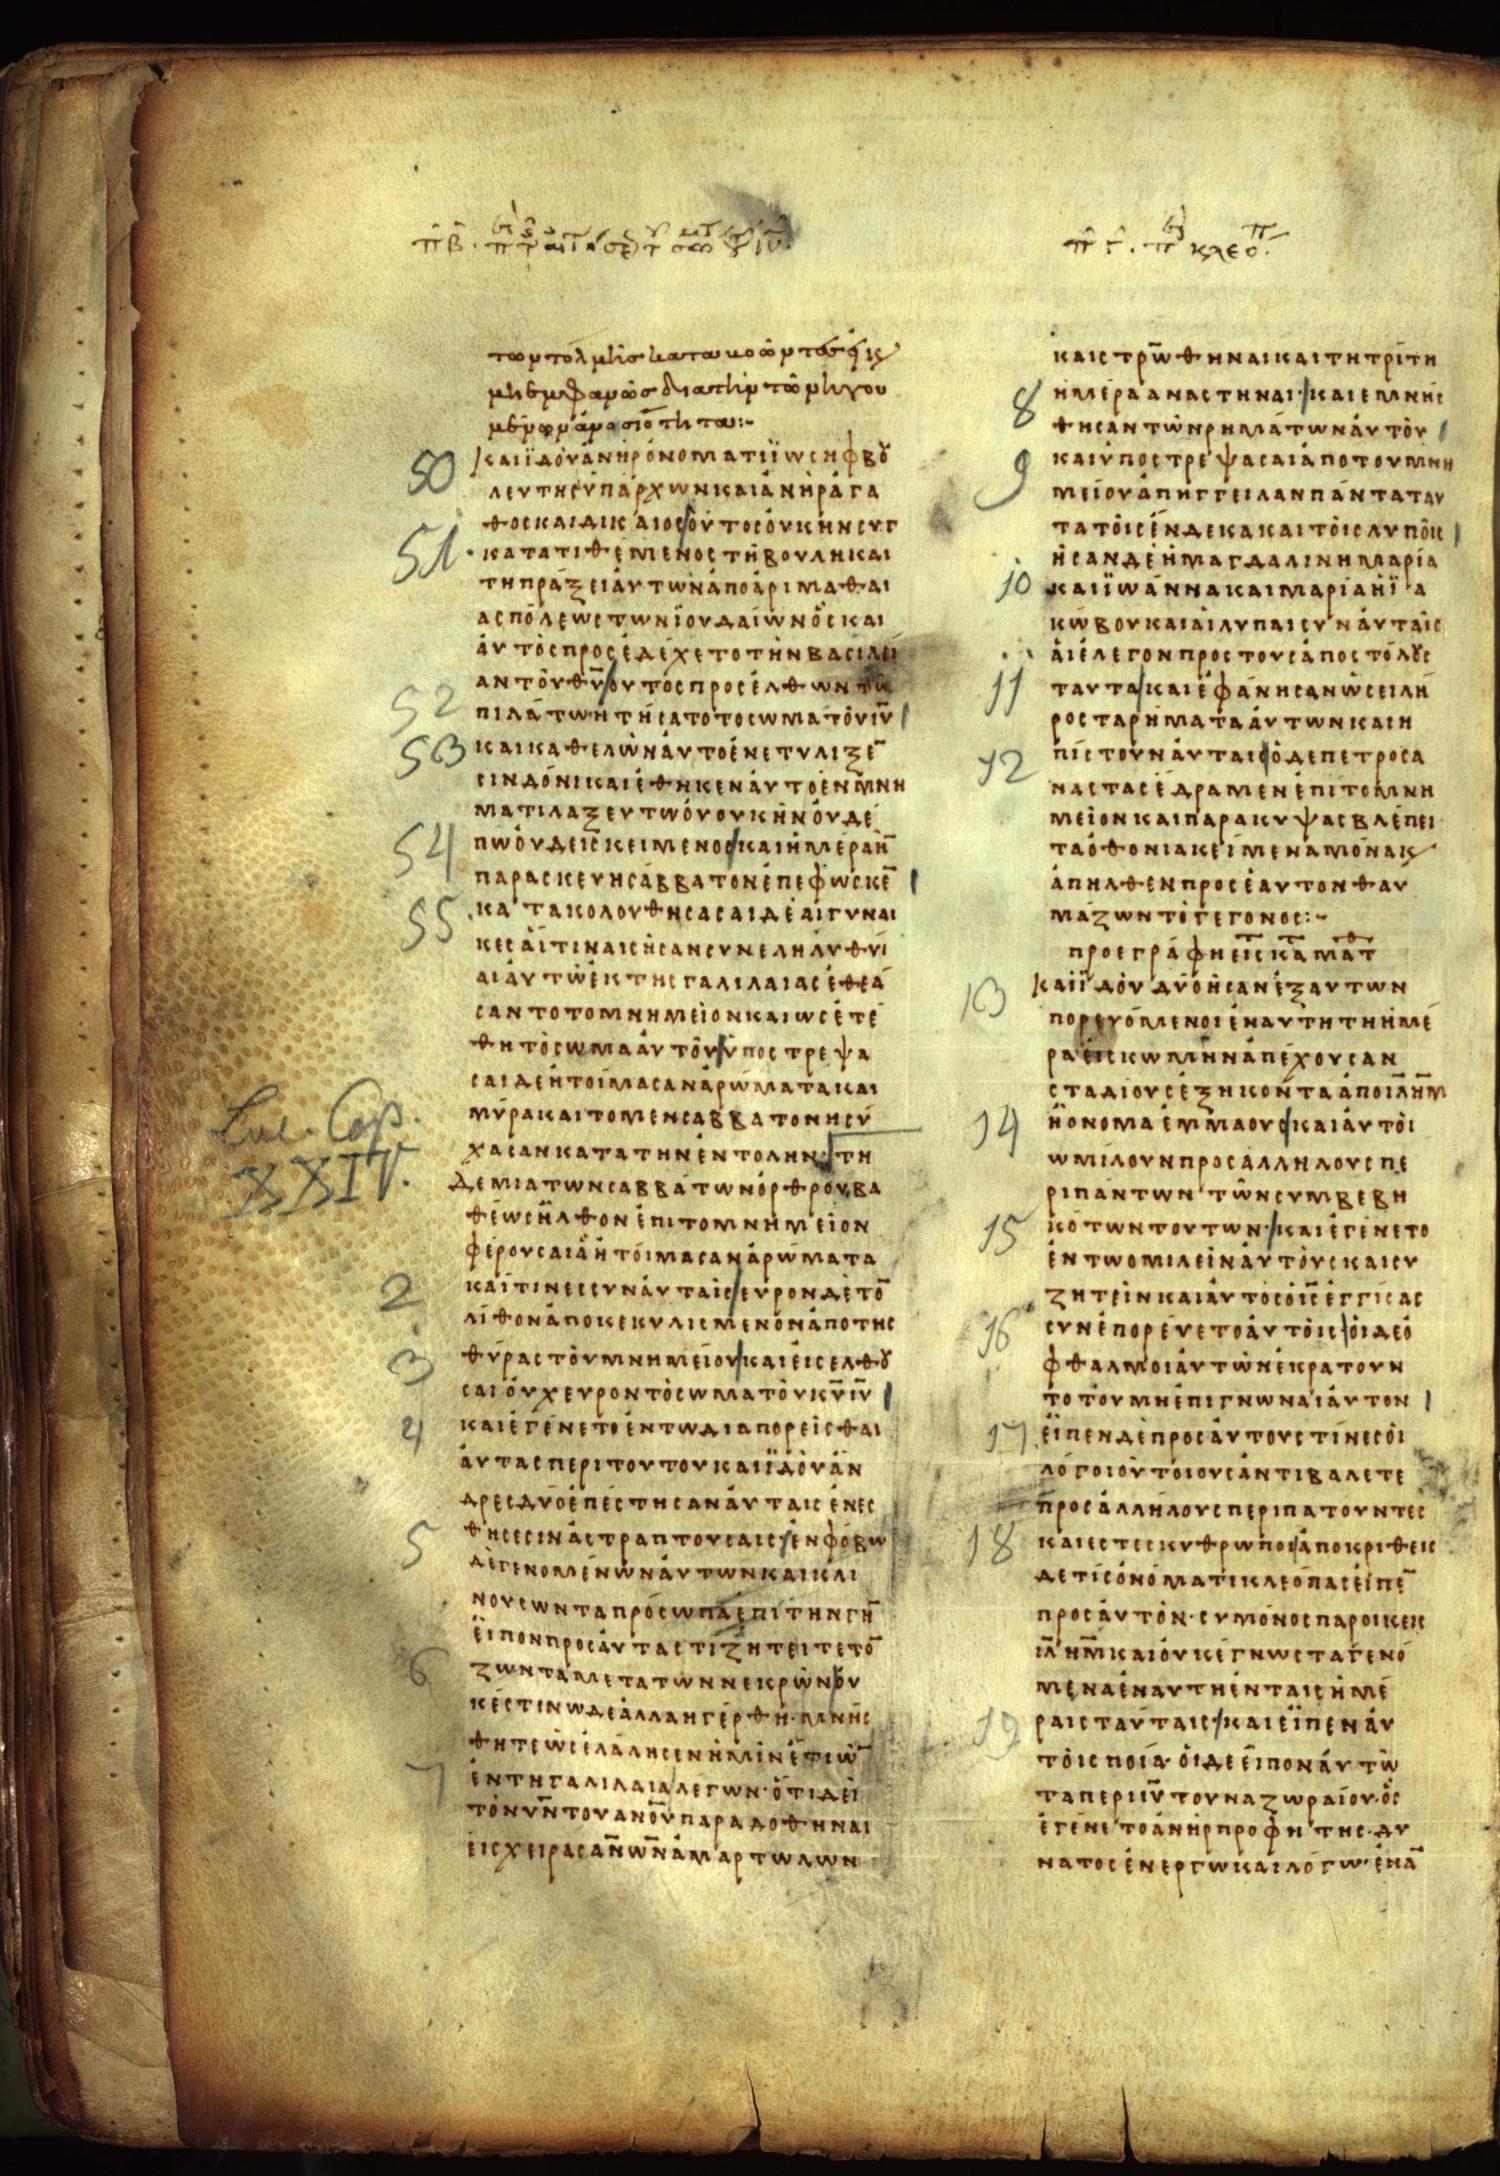 π̑β̑
π̑ γ̑ . κλεο π
50
καιϊδοὺἀνὴρὀνοματιϊωσηφβȣ
λευτὴςὑπάρχωνκαιἀνὴράγα
51
θοςκαιδικαιος/οὑτοςὀυκηνσυγ
κατατιθέμενοςτῆβουληκαι
τηπράξειἀυτωνἀπὀαριμαθαι
αςπόλεωςτωνϊουδαίωνὃςκαι
ἀυτὸςπροςεδέχετοτὴνβασιλεί
52
αντοῦθυ̅/ουτόςπροςέλθωντῶ
πιλάτωητήσατοτοσωματοῦιυ̅
53
καικαθελὼνἀυτοἐνετυλιξε̅
σινδόνικαιέθηκενἀυτοἐνμνη
ματιλαξευτωὁυουκῆνὀυδέ
54
πωὀυδεὶςκειμενος/καιἡμέραη̅
παρασκευησάββατονἐπεφώσκε̅
55
κατακολουθησασαιδὲαιγυναι
κεςἁίτινεςῆσανσυνεληλυθυῖ
αιἀυτῶἐκτηςγαλιλαιαςἐθεά
σαντοτομνημεῖονκαιωςἐτέ
θητὸσωμαἀυτοῦ/ὑποστρεψα
σαιδεἡτοίμασανἀρώματακαι
μύρακαιτομενσαββατονησύ
χασανκατατηνἐντολην·τη
Luc. Cap.
XXIV.
δεμιατωνσαββάτωνὀρθρουβα
θέωςῆλθονἐπιτομνημεῖον
φέρουσαιἃἡτόιμασανἀρώματα
2
καίτινεςσυνἀυταῖς/ευρονδὲτο̅
λίθονἀποκεκυλισμενόνἀποτης
3
θύραςτοῦμνημείου/καιἐισελθȣ
σαιὀυχευροντὸσωματοῦκυ̅ιυ̅
4
καιἐγένετοἐντωδιαπορεῖσθαι
ἀυταςπεριτουτουκαιϊδοὺἄν
δρεςδύοἐπέστησανἀυταιςἐνες
5
θήσεσινἀστραπτουσαις·/ἐνφόβω
δὲγενομένωνἀυτωνκαικλι
νουσωνταπρόσωπαἐπιτηνγη̅
εἶπονπροςἀυταςτιζητειτετο̅
6
ζωνταμετατῶννεκρῶν/ὀυ
κέστινωδεἀλλαηγέρθη·μνής
θητεὡςἐλάλησενἡμῖνἔτιω̅
7
ἐντηγαλιλαια/λέγων·ὅτιδεῖ
τὸνυν̅τουανο̅υ̅παραδοθηναι
ἐιςχειραςαν̅ων̅ἁμαρτωλων
καιστρω̅θηναικαιτητρίτη
8
ημέραἀναστηναι·/καιεμνής
θησαντῶνρημάτωνἀυτοῦ
9
καιὑποστρεψασαιἀποτουμνη
μείουἀπηγγειλανπάνταταυ
τατοῖςἕνδεκακαιτοῖςλυποῖς
10
ησανδὲἡμαγδαλινημαρία
καιϊωάννακαιμαρίαἡϊα
κώβουκαιἁιλυπαισυναυταῖς
ἁιέλεγονπροςτουςἀποστόλȣς
11
ταυτα/καιἐφάνησανὡσειλῆ
ροςταρήματαἀυτωνκαιη
12
πίστουνἀυταις/ὁδεπετροςα
ναστασέδραμενἐπιτομνη
μεῖονκαιπαρακυψαςβλέπει
ταὀθονιακείμεναμόνακ
ἀπηλθενπροςἑαυτονθαυ
μάζωντὸγεγονος:~
προεγράφηεἰς κ̅α̅ μα̅τ̅
13
καιϊδοὺδύοῆσανἐξαυτων
πορευόμενοιἐναυτητηἡμέ
ραεἰςκωμηνἀπέχουσαν
σταδίουςἑξηκονταἀποιλ̅ημ̅
14
ἡονομαἐμμαους/καιἀυτοὶ
ωμίλουνπροςἀλλήλουςπε
ριπάντωντῶνσυμβεβη
15
κότωντουτων·/καιἐγένετο
ἐντωομιλεῖνἀυτοὺςκαισυ
ζητεῖνκαιἀυτοςὁις̅ἐγγίσας
16
συνἐπορέυετοἀυτοῖς/ὁιδεὀ
φθαλμοιἀυτῶνἐκρατουν
τοτουμηἐπιγνωναιἀυτον
17
εἶπενδὲπροςἀυτουςτίνεςὁι
λόγοιοὗτοιουςἀντιβαλετε
προςἀλλήλουςπεριπατουντες
18
καιεστεσκυθρωποι/ἀποκριθεις
δετίςὀνόματικλεόπαςεἶπε̅
προςἀυτὸν·συμόνοςπαροικεις
ιλ̅ημ̅καιὀυκέγνωςταγενό
μεναἐναυτηἐνταιςἡμέ
19
ραιςταύταις·/καιεἶπενἀυ
τοῖςποία·ὁιδεεἶπονἀυτῶ
ταπεριιυ̅τουναζωραίου·ὃς
ἐγένετοἀνὴρπροφήτης·δυ
νατοςἐνεργωκαιλόγω·ἐνα̅